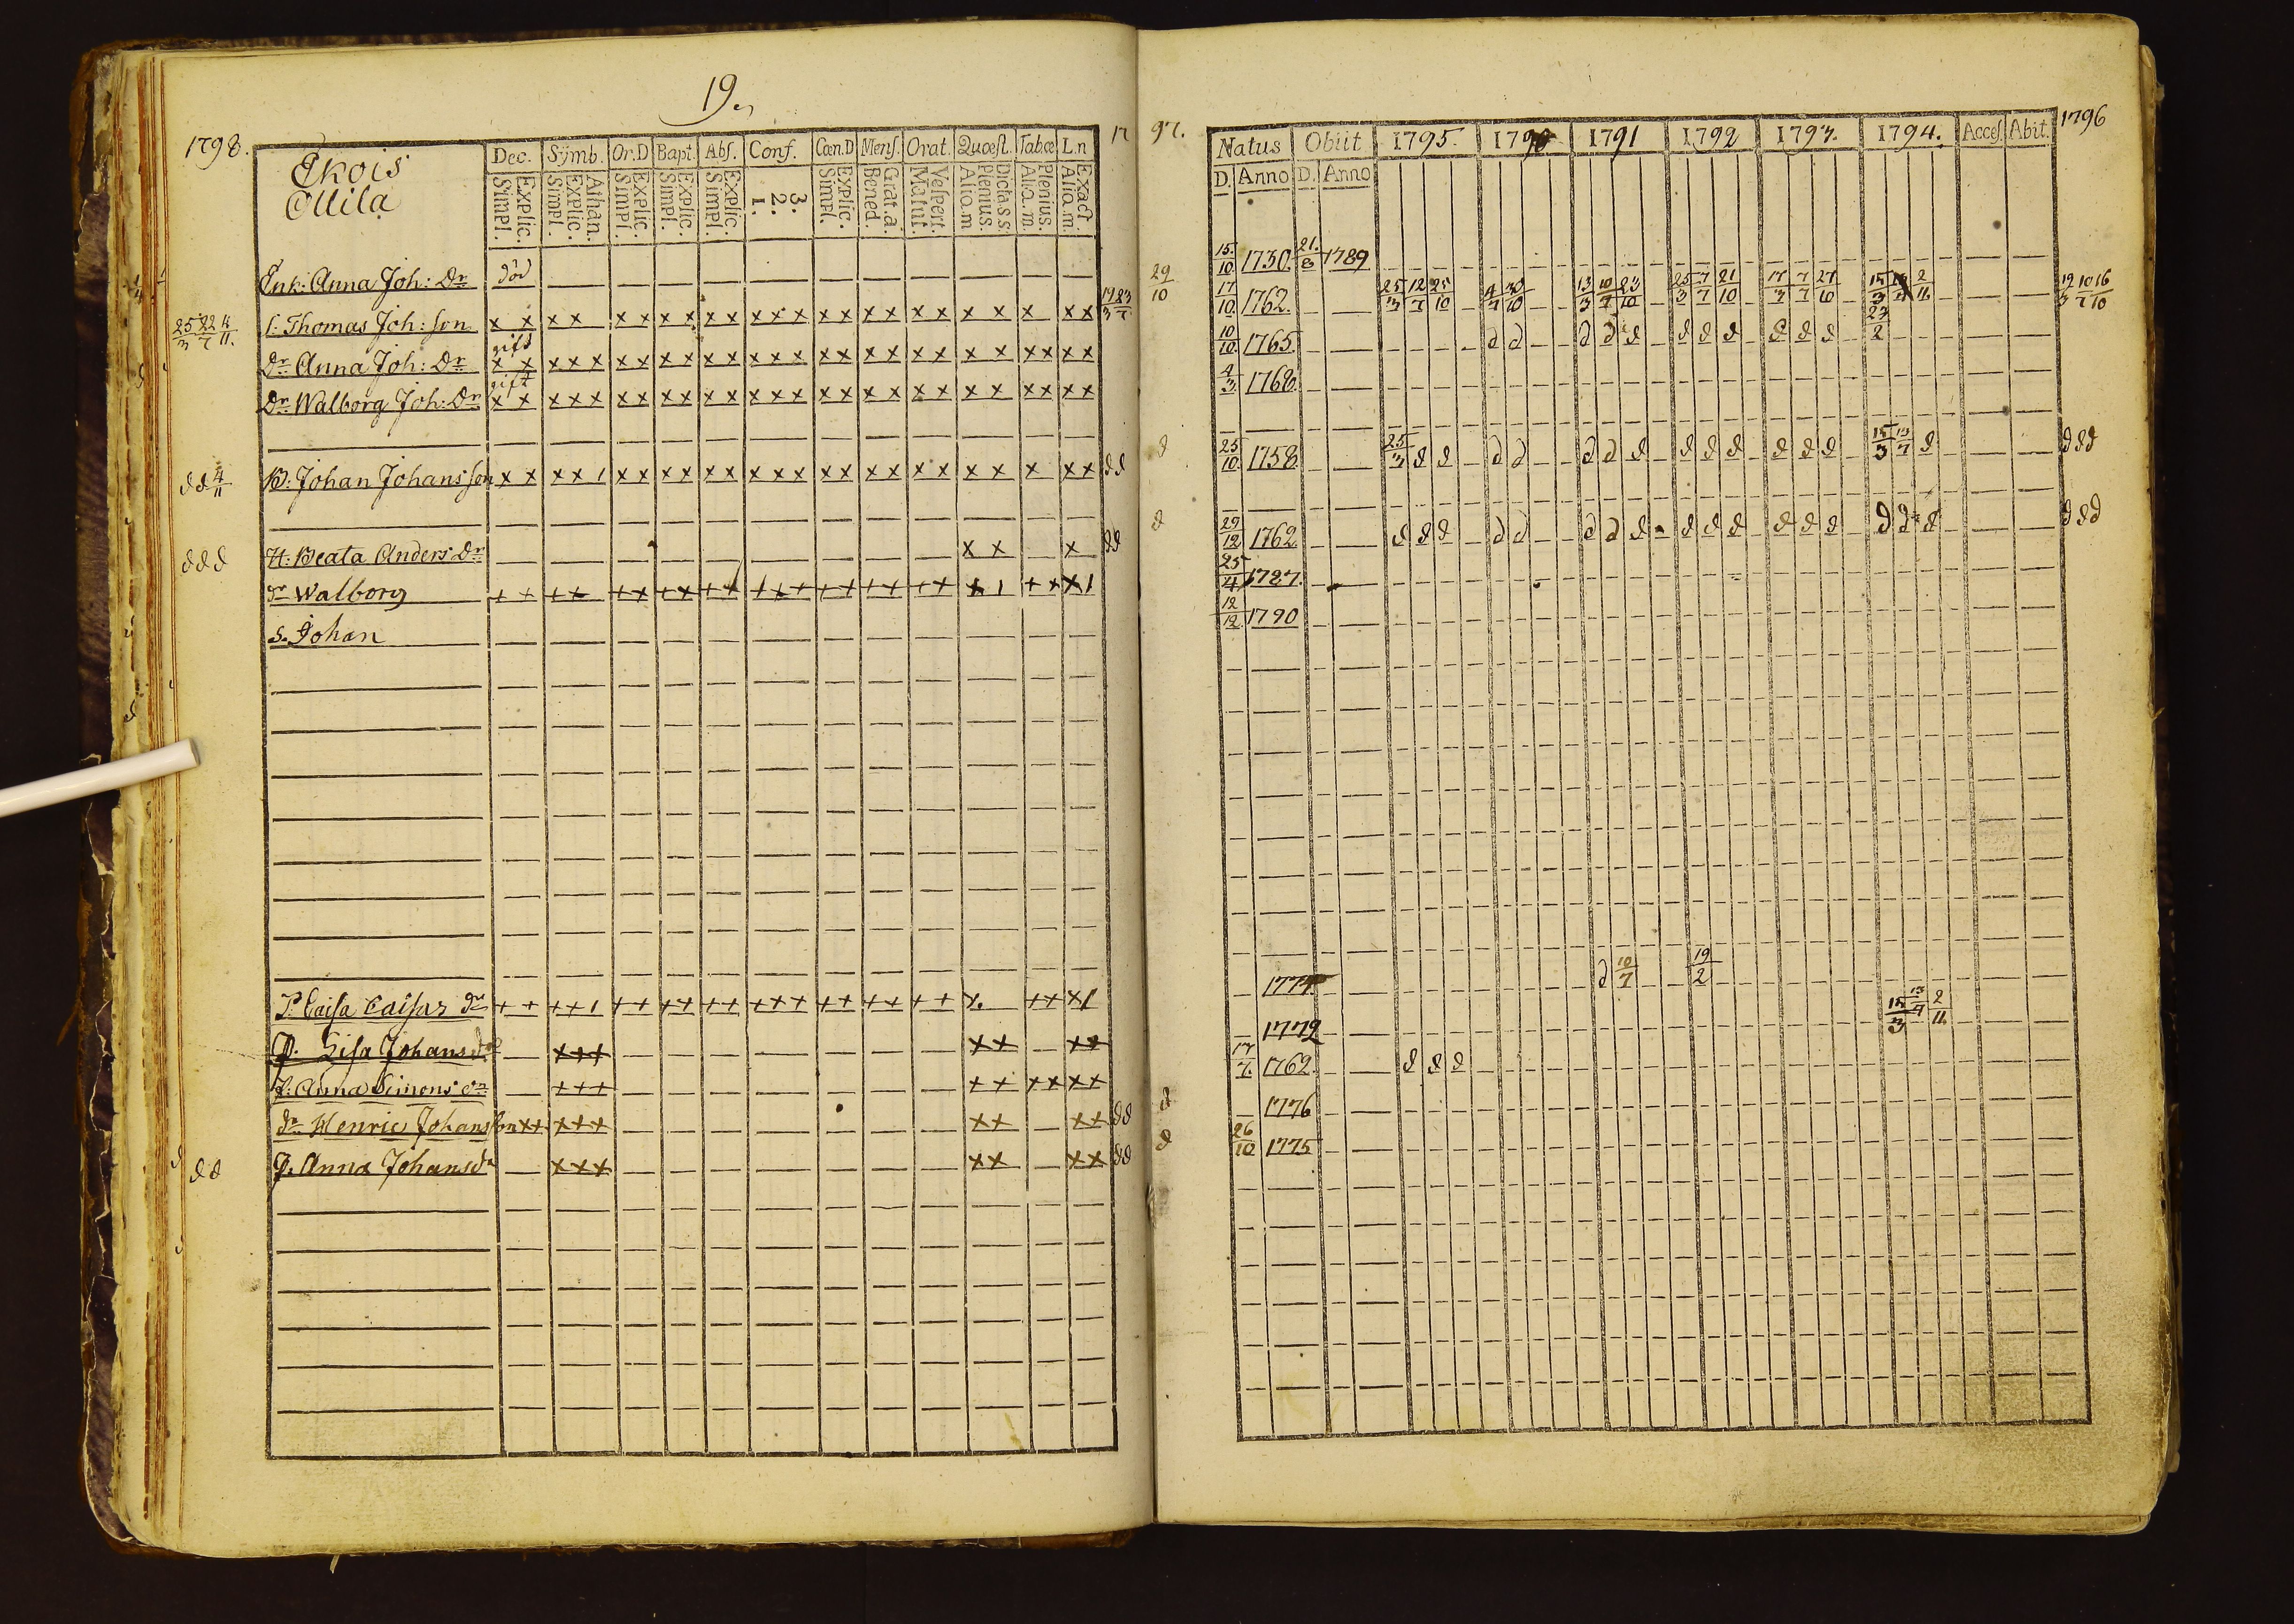 19.
1798.
Ekois
Ollila
Dec. Symb. Or.D Bapt. Abs. Conf. Cœn.D Mens. Orat. Quæst. Tabœ L.n
Explic. Simpl. Athan. Explic. Simpl. Explic. Simpl. Explic. Simpl. Explic. Simpl. 3. 2. 1. Explic. Simpl. Grat.a. Bened. Vespert. Matut. Dicta s.s. Plenius. Aliq.m Plenius. Aliq.m. Exact. Aliq.m.
Enk: Anna Joh: Dr död
S: Thomas Joh: son x x x x x x x x x x x x x x x x x x x x x x x x x
gift
Dr Anna Joh: Dr x x x x x x x x x x x x x x x x x x x x x x x x x x
gift
Dr Walborg Joh: Dr x x x x x x x x x x x x x x x x x x x x x x x x x x
B: Johan Johansson x x x x 1 x x x x x x x x x x x x x x x x x x x x x
H: Beata Anders Dr x x x
dr Walborg + + + + + + + + + + + + + + + + + + + x 1 + + x 1
s. Johan
P. Caisa Caisas dr + + + + 1 + + + + + + + + + + + + + + + x. + + x 1
P. Lisa Johans dr x x x x x x x
P: Anna Simons dr + + + + + x x x x
dr Henric Johansson x x x x x x x x x
P. Anna Johansdr x x x x x x x
17 97.
Natus Obiit 1795. 1790 1791 1792 1793. 1794. Acces. Abit. 1796
D. Anno D. Anno
15/10 1730. 21/8 1789
17/10 1762. 25/3 12/7 25/10 4/7 30/10 13/3 10/7 23/10 25/3 7/7 21/10 17/3 7/7 27/10 15/3 2/11 19/3 10/7 16/10
10/10 1765. d d d d d d d d d d d 23/2
4/3 1768.
25/10 1758 25/3 d d d d d d d d d d d d d 15/3 13/7 d d d d
29/12 1762 d d d d d d d d d d d d d d d d d d d d
25/4 1787.
12/12 1790
1774 d 10/7 19/2
1772 15/3 13/7 2/11
17/7 1762. d d d
1776
26/10 1775